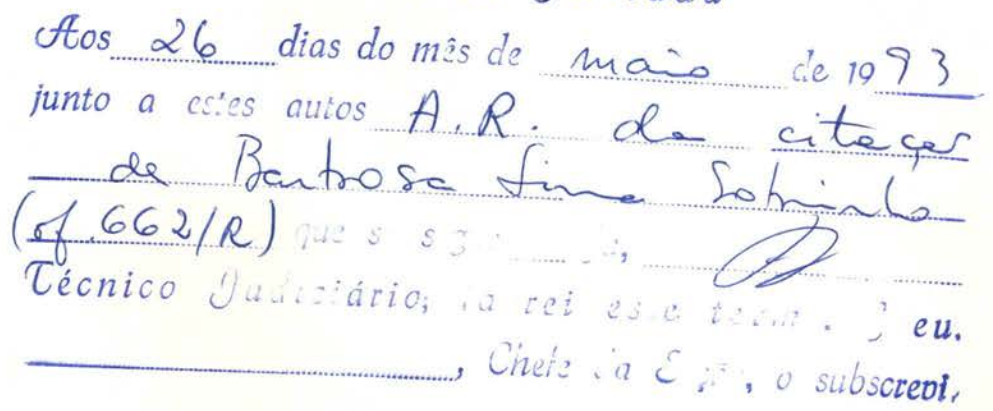 Aos 26 dias do mês de maio de 1993
junto a estes autos A.R. da citação
de Barbosa Lima Sobrinho
(of. 662/R) que s
Técnico Judiciário, rei este eu.
, Chefe da , o subscrevi,